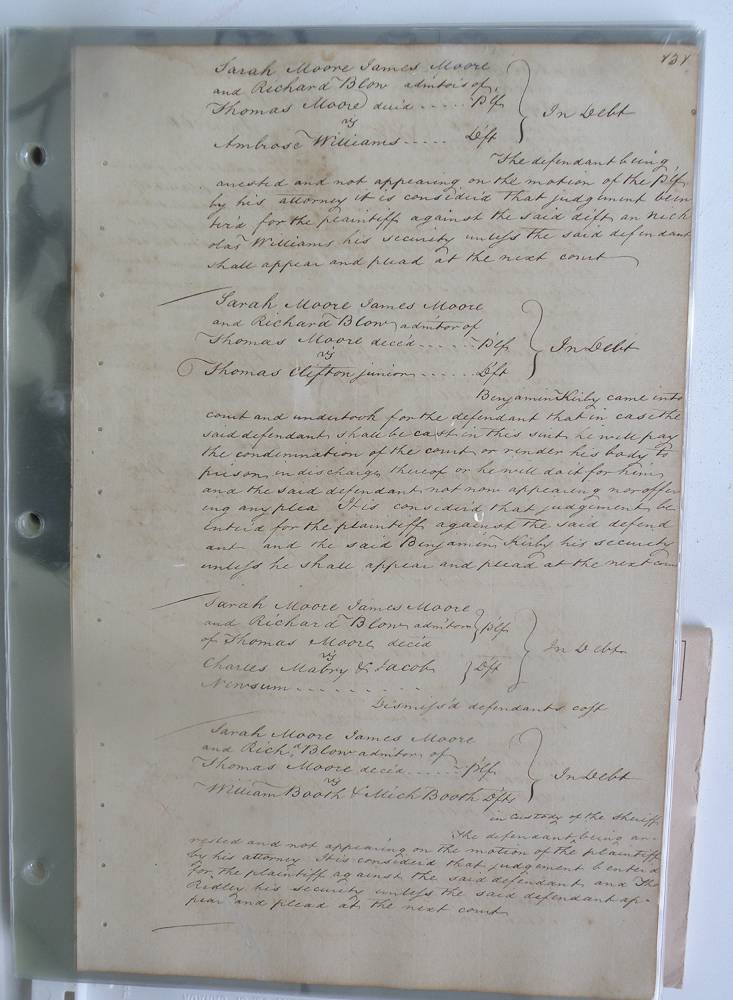 Sarah Moore James Moore
and Richard Blow admors of
Thomas Moore decd ..... Plf
vs
In Debt
Ambrose Williams ..... Dft
The defendant being
arrested and not appearing on the motion of the Plf
by his attorney it is consider'd that judgement be en
ter'd for the plaintiff against the said deft an Nich
olas Williams his security unless the said defendant
shall appear and plead at the next court
Sarah Moore James Moore
and Richard Blow admitor of
Thomas Moore dece'd ...... Plf
vs
In Debt
Thomas Clifton junior ...... Dft
Benjamin Kirby came into
court and undertook for the defendant that in case the
said defendant shall be cast in this suit he will pay
the condemnation of the court or render his body to
prison in discharge thereof or he will do it for him
and the said defendant not now appearing nor offer
ing any plea It is consider'd that judgement be
Enter'd for the plaintiff against the said defend
ant and the said Benjamin Kirby his security
unless he shall appear and plead at the next cour
Sarah Moore James Moore
and Richard Blow admitors Plf
of Thomas Moore dec'd
vs
In Debt
Charles Mabry & Jacob Dft
Newsum ..........
Dismiss'd defendants cost
Sarah Moore James Moore
and Richd Blow admitors of
Thomas Moore dece'd ..... Plf
vs
In Debt
William Booth & Mich Booth Dfts
in custody of the sheriff
The defendant being ar-
rested and not appearing on the motion of the plaintiff
by his attorney It is consider'd that judgement b enter'd
for the plaintiff against the said defendant and Tho
Ridley his security unless the said defendant ap-
pear and plead at the next court